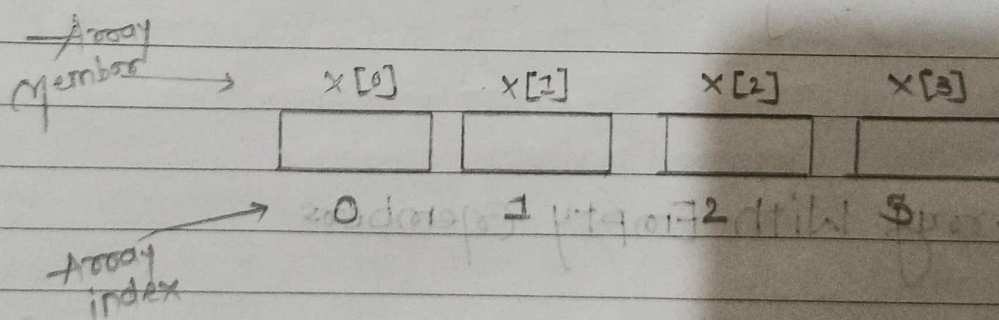 Array
Member → x[0] x[1] x[2] x[3]
0 1 2 3
Array
index